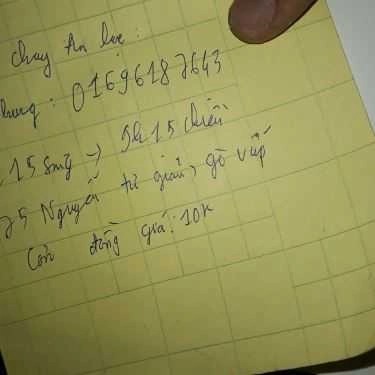 chay An lạc:
hung: 01696187643
.15 sáng → 5h15 chiều
75 Nguyễn tư giản, gò vấp
Cơm đồng giá: 10k